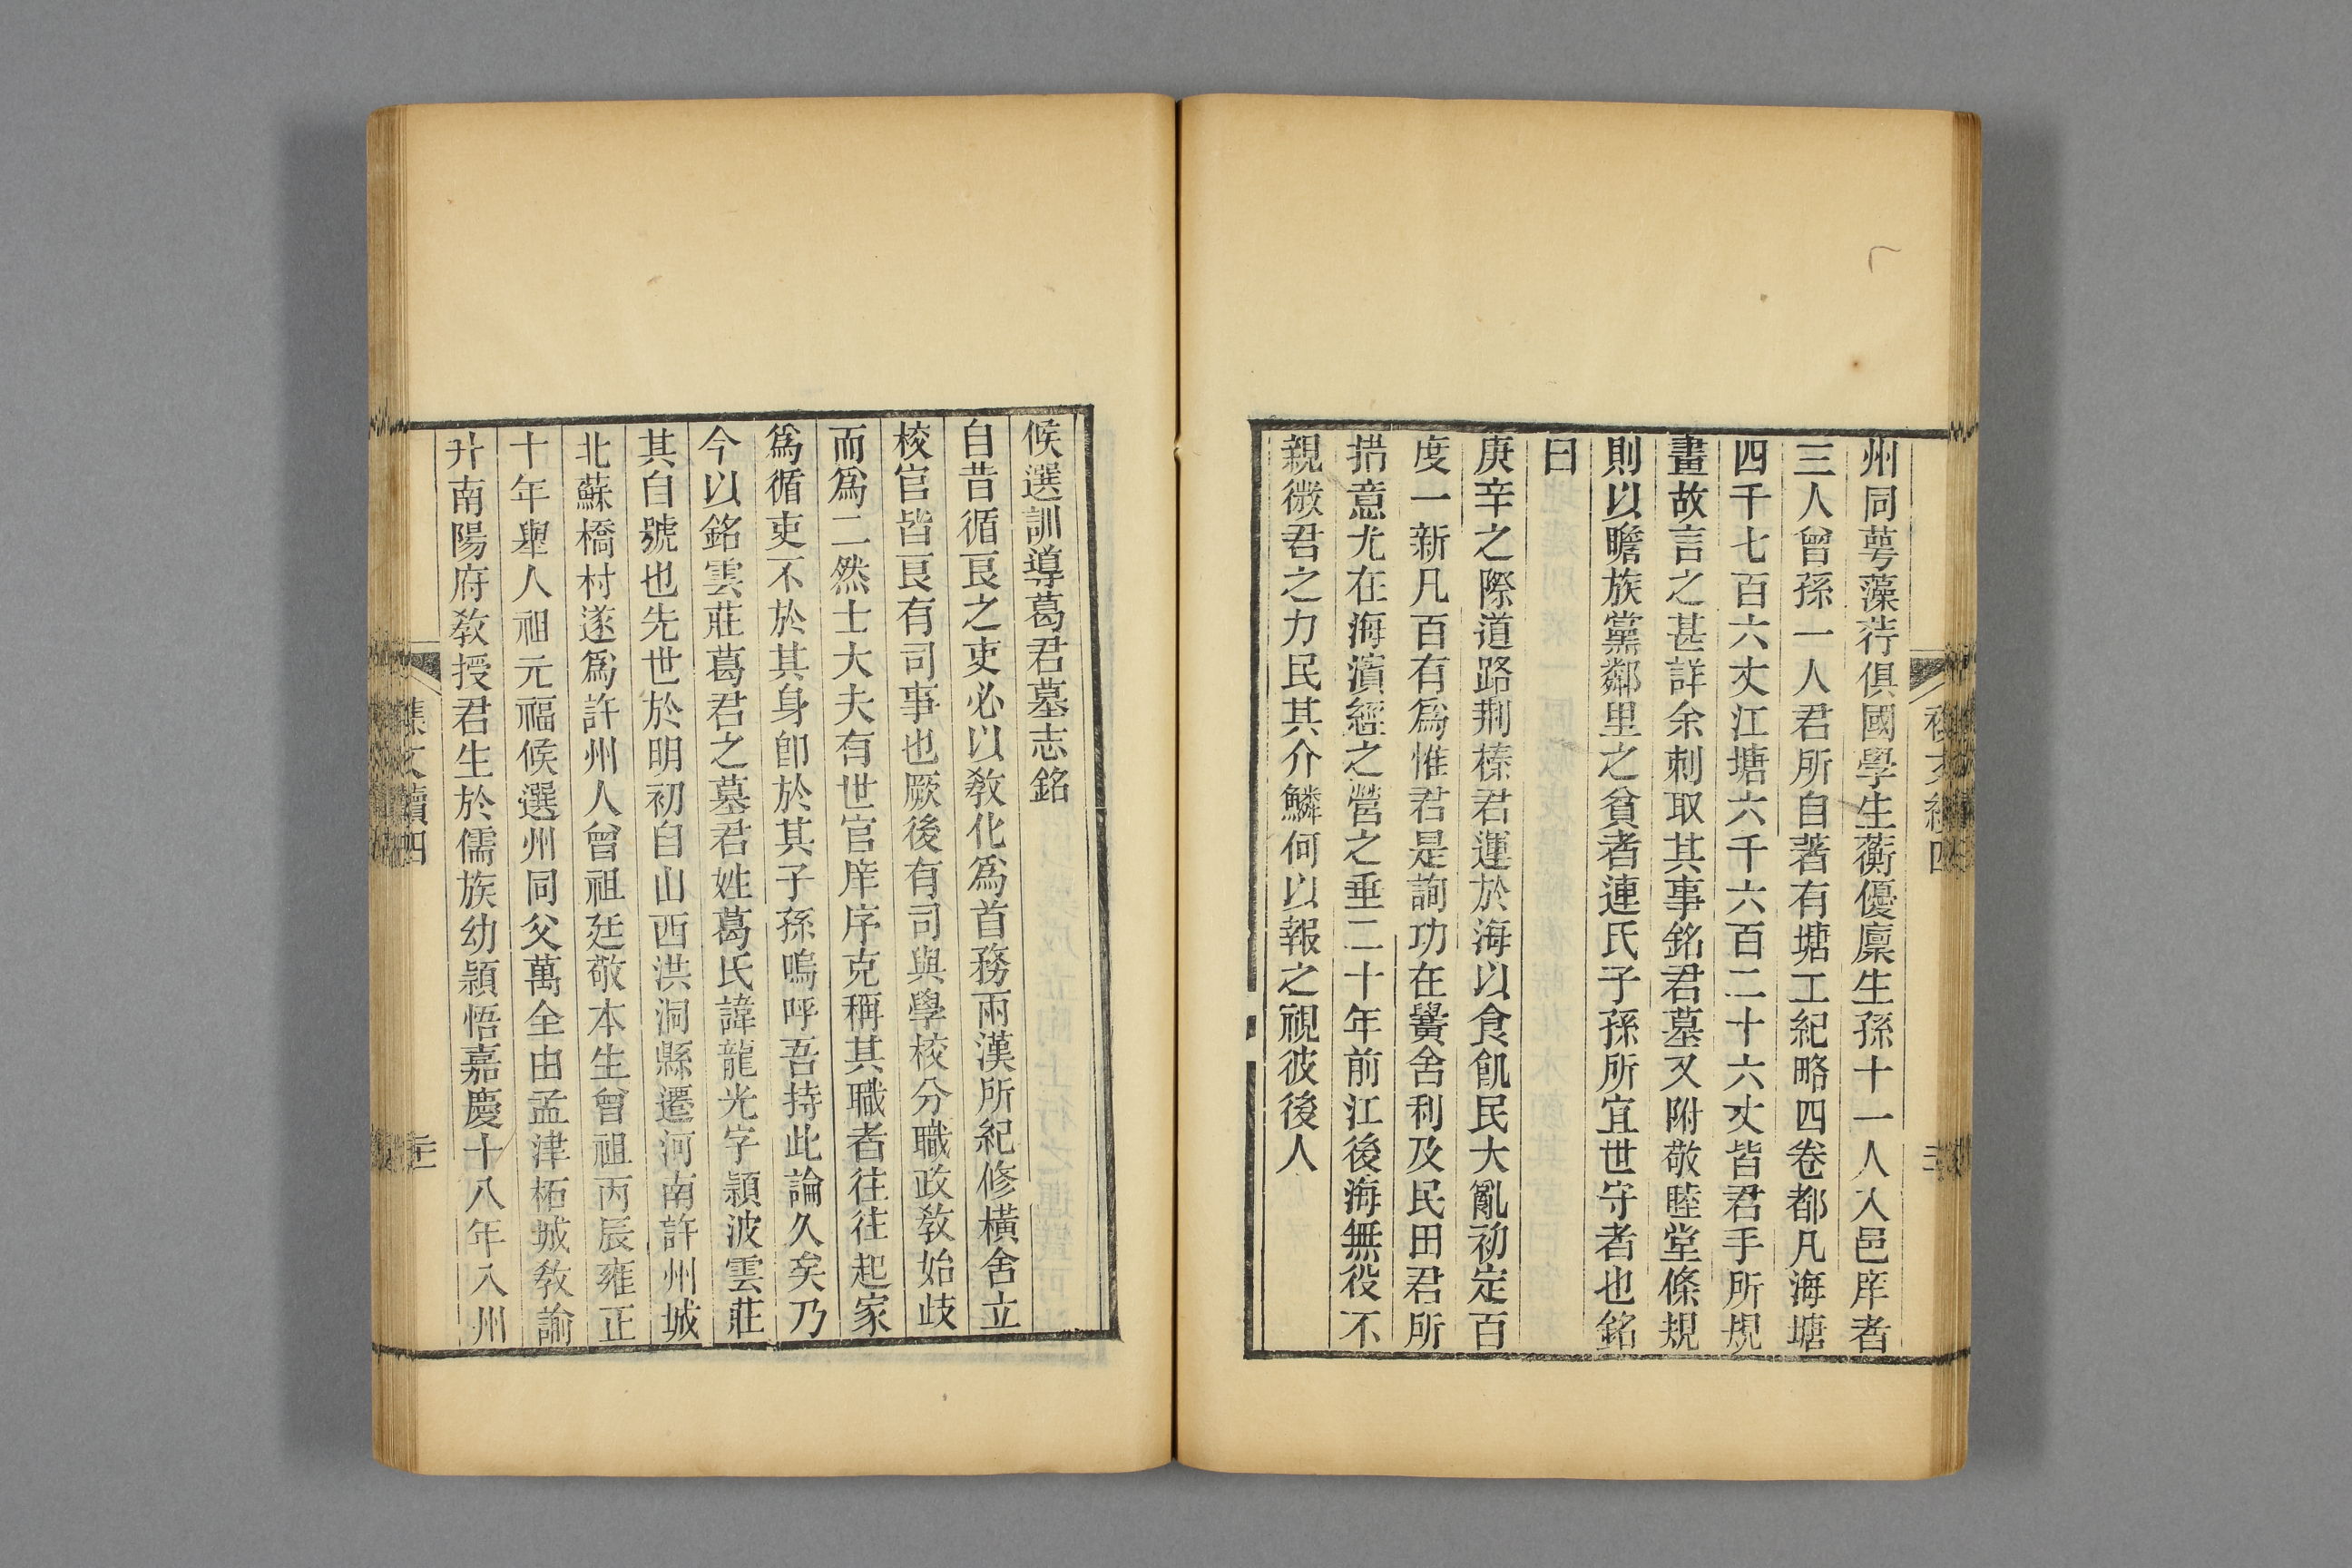 州同蕚藻荇俱國學生蘅優廩生孫十一人入邑庠者
三人曾孫一人君所自著有塘工紀略四卷都凡海塘
四千七百六丈江塘六千六百二十六丈皆君手所規
畫故言之甚詳余刺取其事銘君墓又附敬睦堂條規
則以贍族黨鄰里之貧者連氏子孫所宜世守者也銘
曰
庚辛之際道路荆榛君運於海以食飢民大亂初定百
度一新凡百有爲惟君是詢功在黌舍利及民田君所
措意尤在海濱經之營之垂二十年前江後海無役不
親微君之力民其介鱗何以報之視彼後人
候選訓導葛君墓志銘
自昔循良之吏必以敎化爲首務兩漢所紀修橫舍立
校官皆良有司事也厥後有司與學校分職政敎始歧
而爲二然士大夫有世官庠序克稱其職者往往起家
爲循吏不於其身卽於其子孫嗚呼吾持此論久矣乃
今以銘雲莊葛君之墓君姓葛氏諱龍光字穎波雲莊
其自號也先世於明初自山西洪洞縣遷河南許州城
北蘇橋村遂爲許州人曾祖廷敬本生曾祖丙辰雍正
十年舉人祖元福候選州同父萬全由孟津柘城敎諭
升南陽府敎授君生於儒族幼穎悟嘉慶十八年入州
集文續四